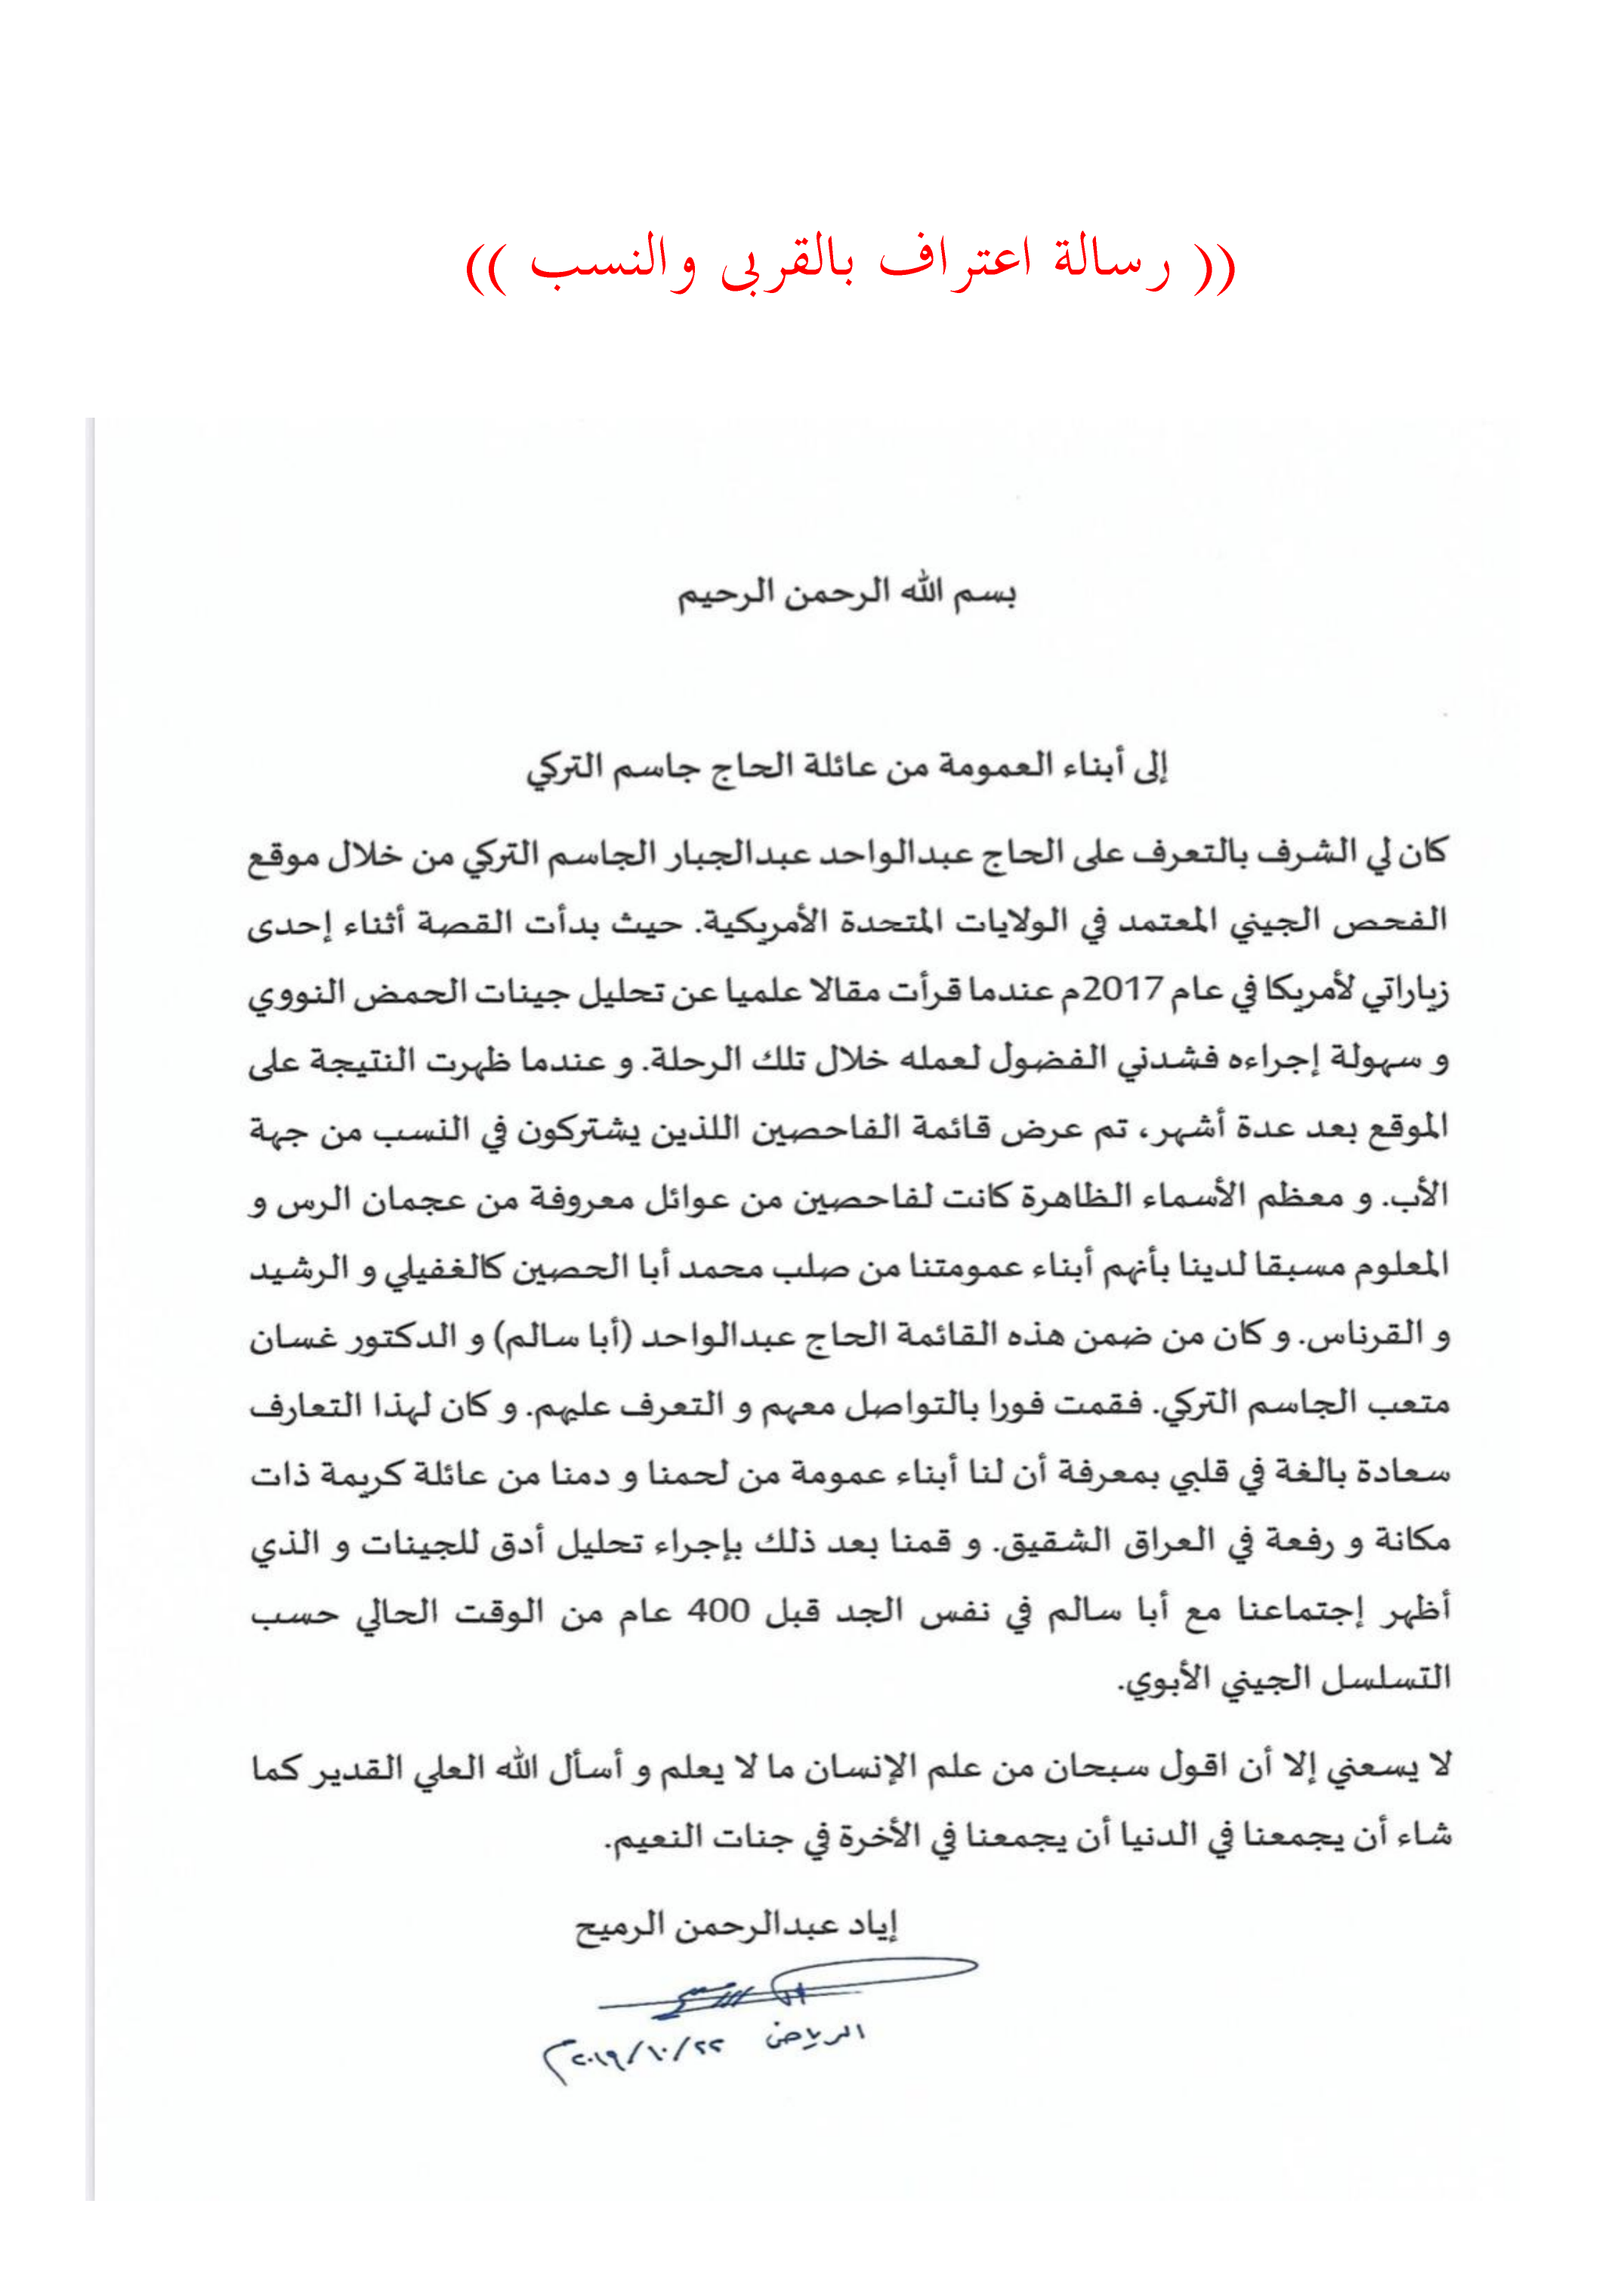 (( رسالة اعتراف بالقربى والنسب ))
بسم الله الرحمن الرحيم
إلى أبناء العمومة من عائلة الحاج جاسم التركي
كان لي الشرف بالتعرف على الحاج عبدالواحد عبدالجبار الجاسم التركي من خلال موقع
الفحص الجيني المعتمد في الولايات المتحدة الأمريكية. حيث بدأت القصة أثناء إحدى
زياراتي لأمريكا في عام 2017م عندما قرأت مقالا علميا عن تحليل جينات الحمض النووي
و سهولة إجراءه فشدني الفضول لعمله خلال تلك الرحلة. و عندما ظهرت النتيجة على
الموقع بعد عدة أشهر، تم عرض قائمة الفاحصين اللذين يشتركون في النسب من جهة
الأب. و معظم الأسماء الظاهرة كانت لفاحصين من عوائل معروفة من عجمان الرس و
المعلوم مسبقا لدينا بأنهم أبناء عمومتنا من صلب محمد أبا الحصين كالغفيلي و الرشيد
و القرناس. و كان من ضمن هذه القائمة الحاج عبدالواحد (أبا سالم) و الدكتور غسان
متعب الجاسم التركي. فقمت فورا بالتواصل معهم و التعرف عليهم. و كان لهذا التعارف
سعادة بالغة في قلبي بمعرفة أن لنا أبناء عمومة من لحمنا و دمنا من عائلة كريمة ذات
مكانة و رفعة في العراق الشقيق. و قمنا بعد ذلك بإجراء تحليل أدق للجينات و الذي
أظهر إجتماعنا مع أبا سالم في نفس الجد قبل 400 عام من الوقت الحالي حسب
التسلسل الجيني الأبوي.
لا يسعني إلا أن اقول سبحان من علم الإنسان ما لا يعلم و أسأل الله العلي القدير كما
شاء أن يجمعنا في الدنيا أن يجمعنا في الأخرة في جنات النعيم.
إياد عبدالرحمن الرميح
الرياض ٢٢/١٠/٢٠١٩م